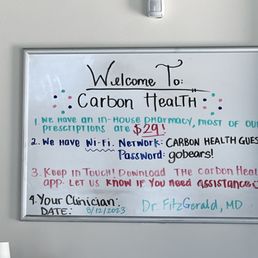 Welcome To:
Carbon Health
1. We have an in-house pharmacy, most of our
prescriptions are $29!
2. We have Wi-Fi. Network: CARBON HEALTH GUES
Password: gobears!
3. Keep in Touch! Download The Carbon Heal
app. Let us know if you need assistance
4. Your Clinician: Dr. FitzGerald, MD
DATE: 8/12/2023